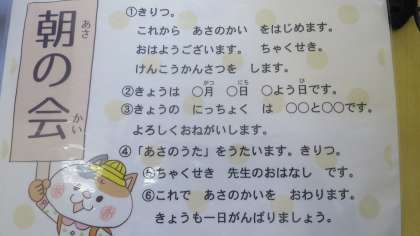 朝の会
あさ
かい
①きりつ。
これから　あさのかい　をはじめます。
おはようございます。　ちゃくせき。
けんこうかんさつを　します。
②きょうは　〇月　〇日　〇よう日です。
がつ　にち　び
③きょうの　にっちょく　は　〇〇と〇〇です。
よろしくおねがいします。
④「あさのうた」をうたいます。きりつ。
⑤ちゃくせき　先生のおはなし　です。
⑥これで　あさのかいを　おわります。
きょうも一日がんばりましょう。